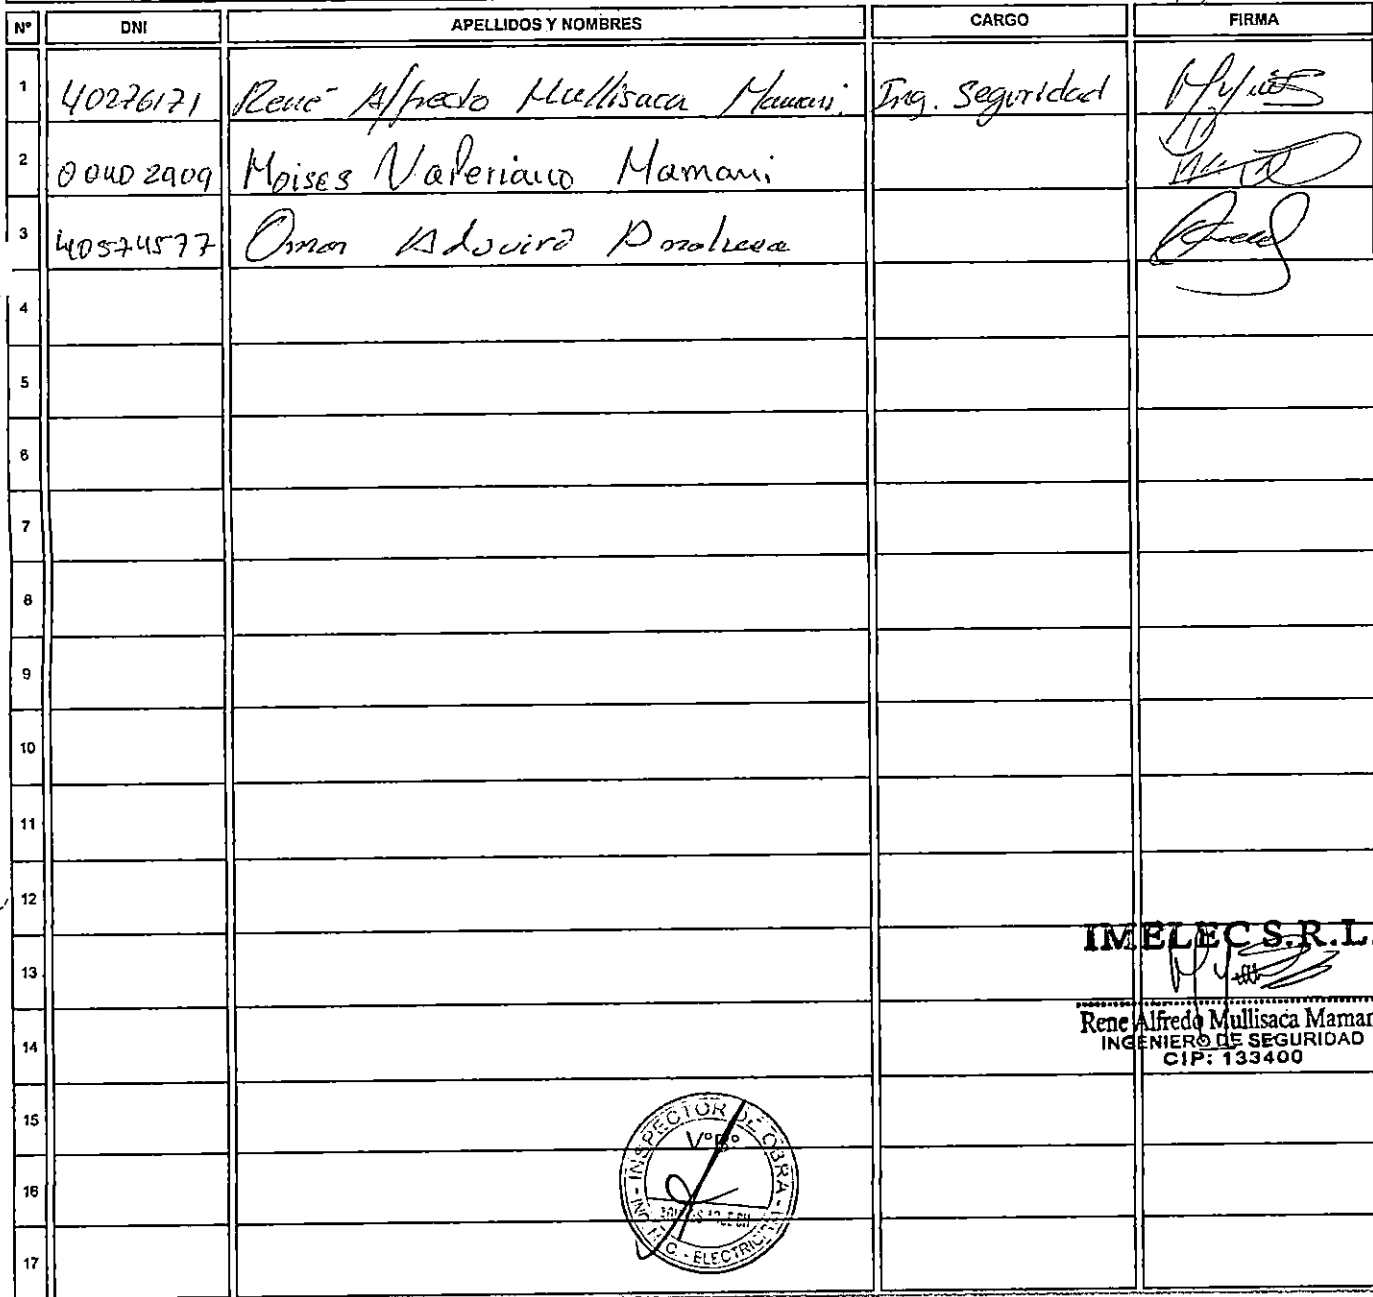 N° DNI APELLIDOS Y NOMBRES CARGO FIRMA
1 40276171 René Alfredo Mullisaca Mamani Ing. Seguridad
2 00402909 Moises Valeriano Mamani
3 40574577 Omar
4
5
6
7
8
9
10
11
12
IMELEC S.R.L.
13
Rene Alfredo Mullisaca Maman
INGENIERO DE SEGURIDAD
14
CIP: 133400
15
INSPECTOR DE OBRA
V°B°
16
ELECTRIC
17